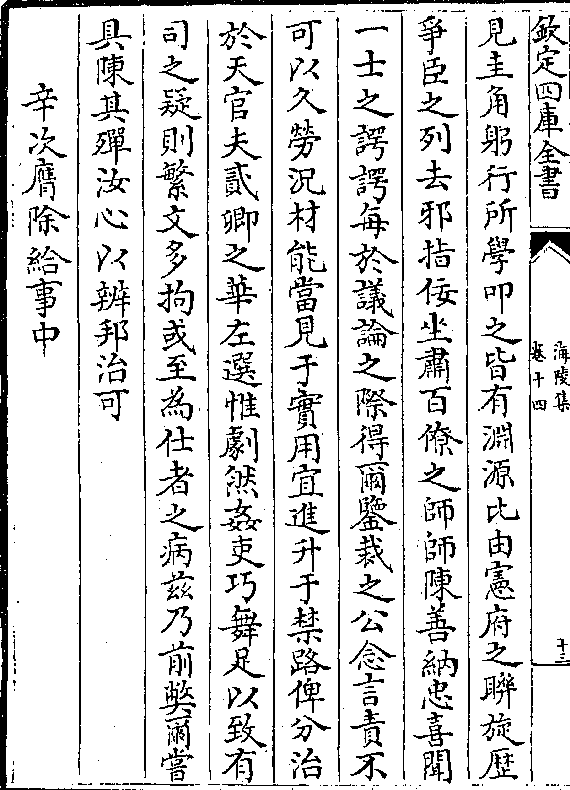 欽定四庫全書
海陵集
卷十四
十三
見圭角躬行所學叩之皆有淵源比由憲府之聯旋歷
爭臣之列去邪指佞坐肅百僚之師師陳善納忠喜聞
一士之諤諤每於議論之際得爾鑒裁之公念言責不
可以久勞況材能當見于實用宜進升于禁路俾分治
於天官夫貳卿之華左選惟劇然姦吏巧舞足以致有
司之疑則繁文多拘或至為仕者之病茲乃前弊爾當
具陳其殫汝心以辨邦治可
辛次膺除給事中